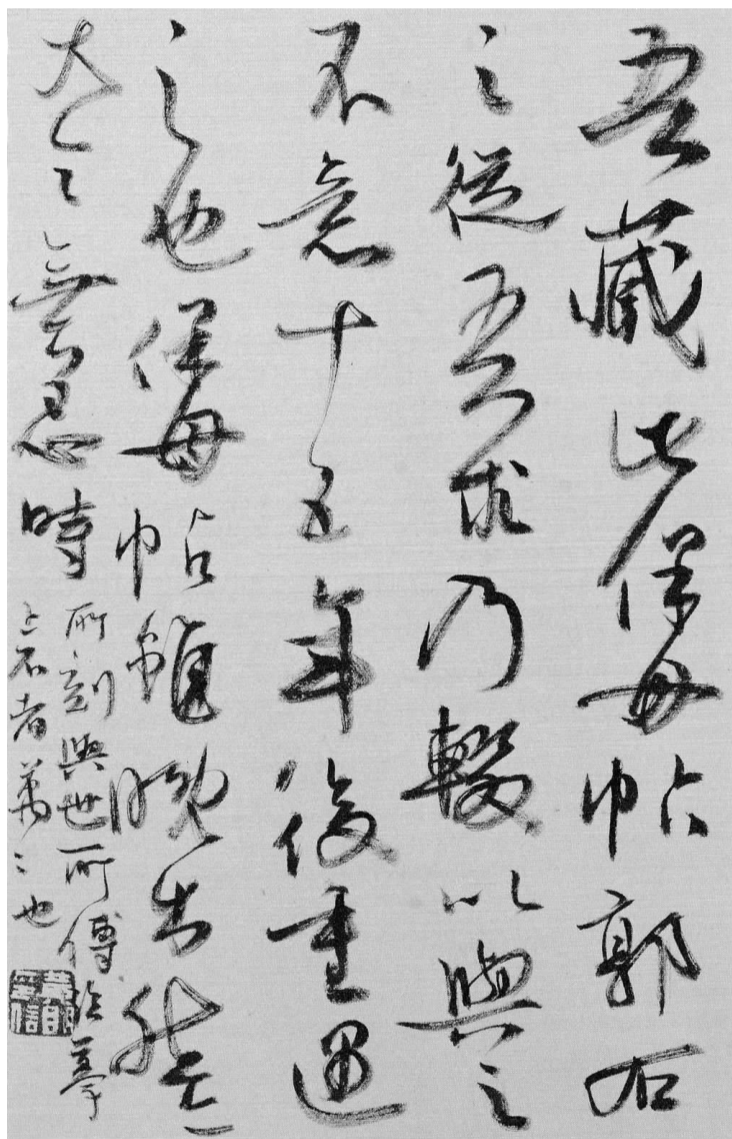 吾藏此保母帖郭右
之從吾求乃輟以與之
不意十五年後重遇
之也保母帖雖晚出然是
大令無恙時
所刻與世所傳臨摹
上石者萬〻也